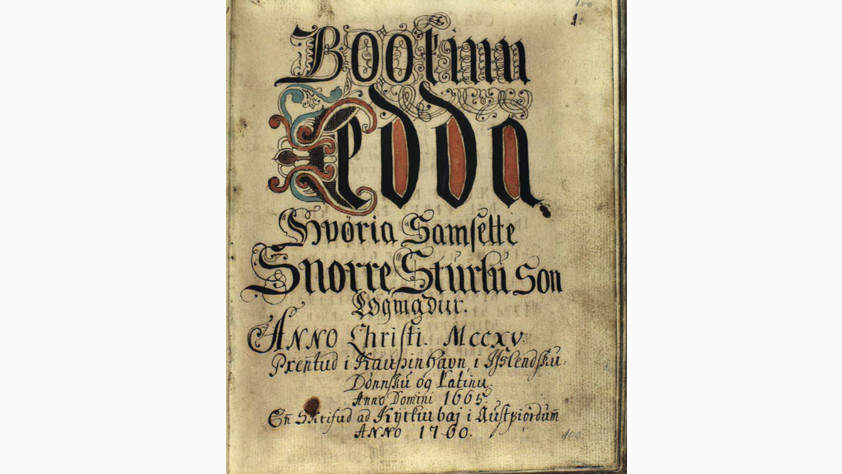 Bookinn
Edda
Hvoria Samsette
Snorre Sturlu Son
Løgmadur.
ANNO Christi. MCCXV.
Prentud i Kaupinhavn, i Jslendsku
Dónnsku og Latinu.
Anno Domini 1665
En Skrifud ad Kyrkiubæ i Austfiördum
ANNO 1760.